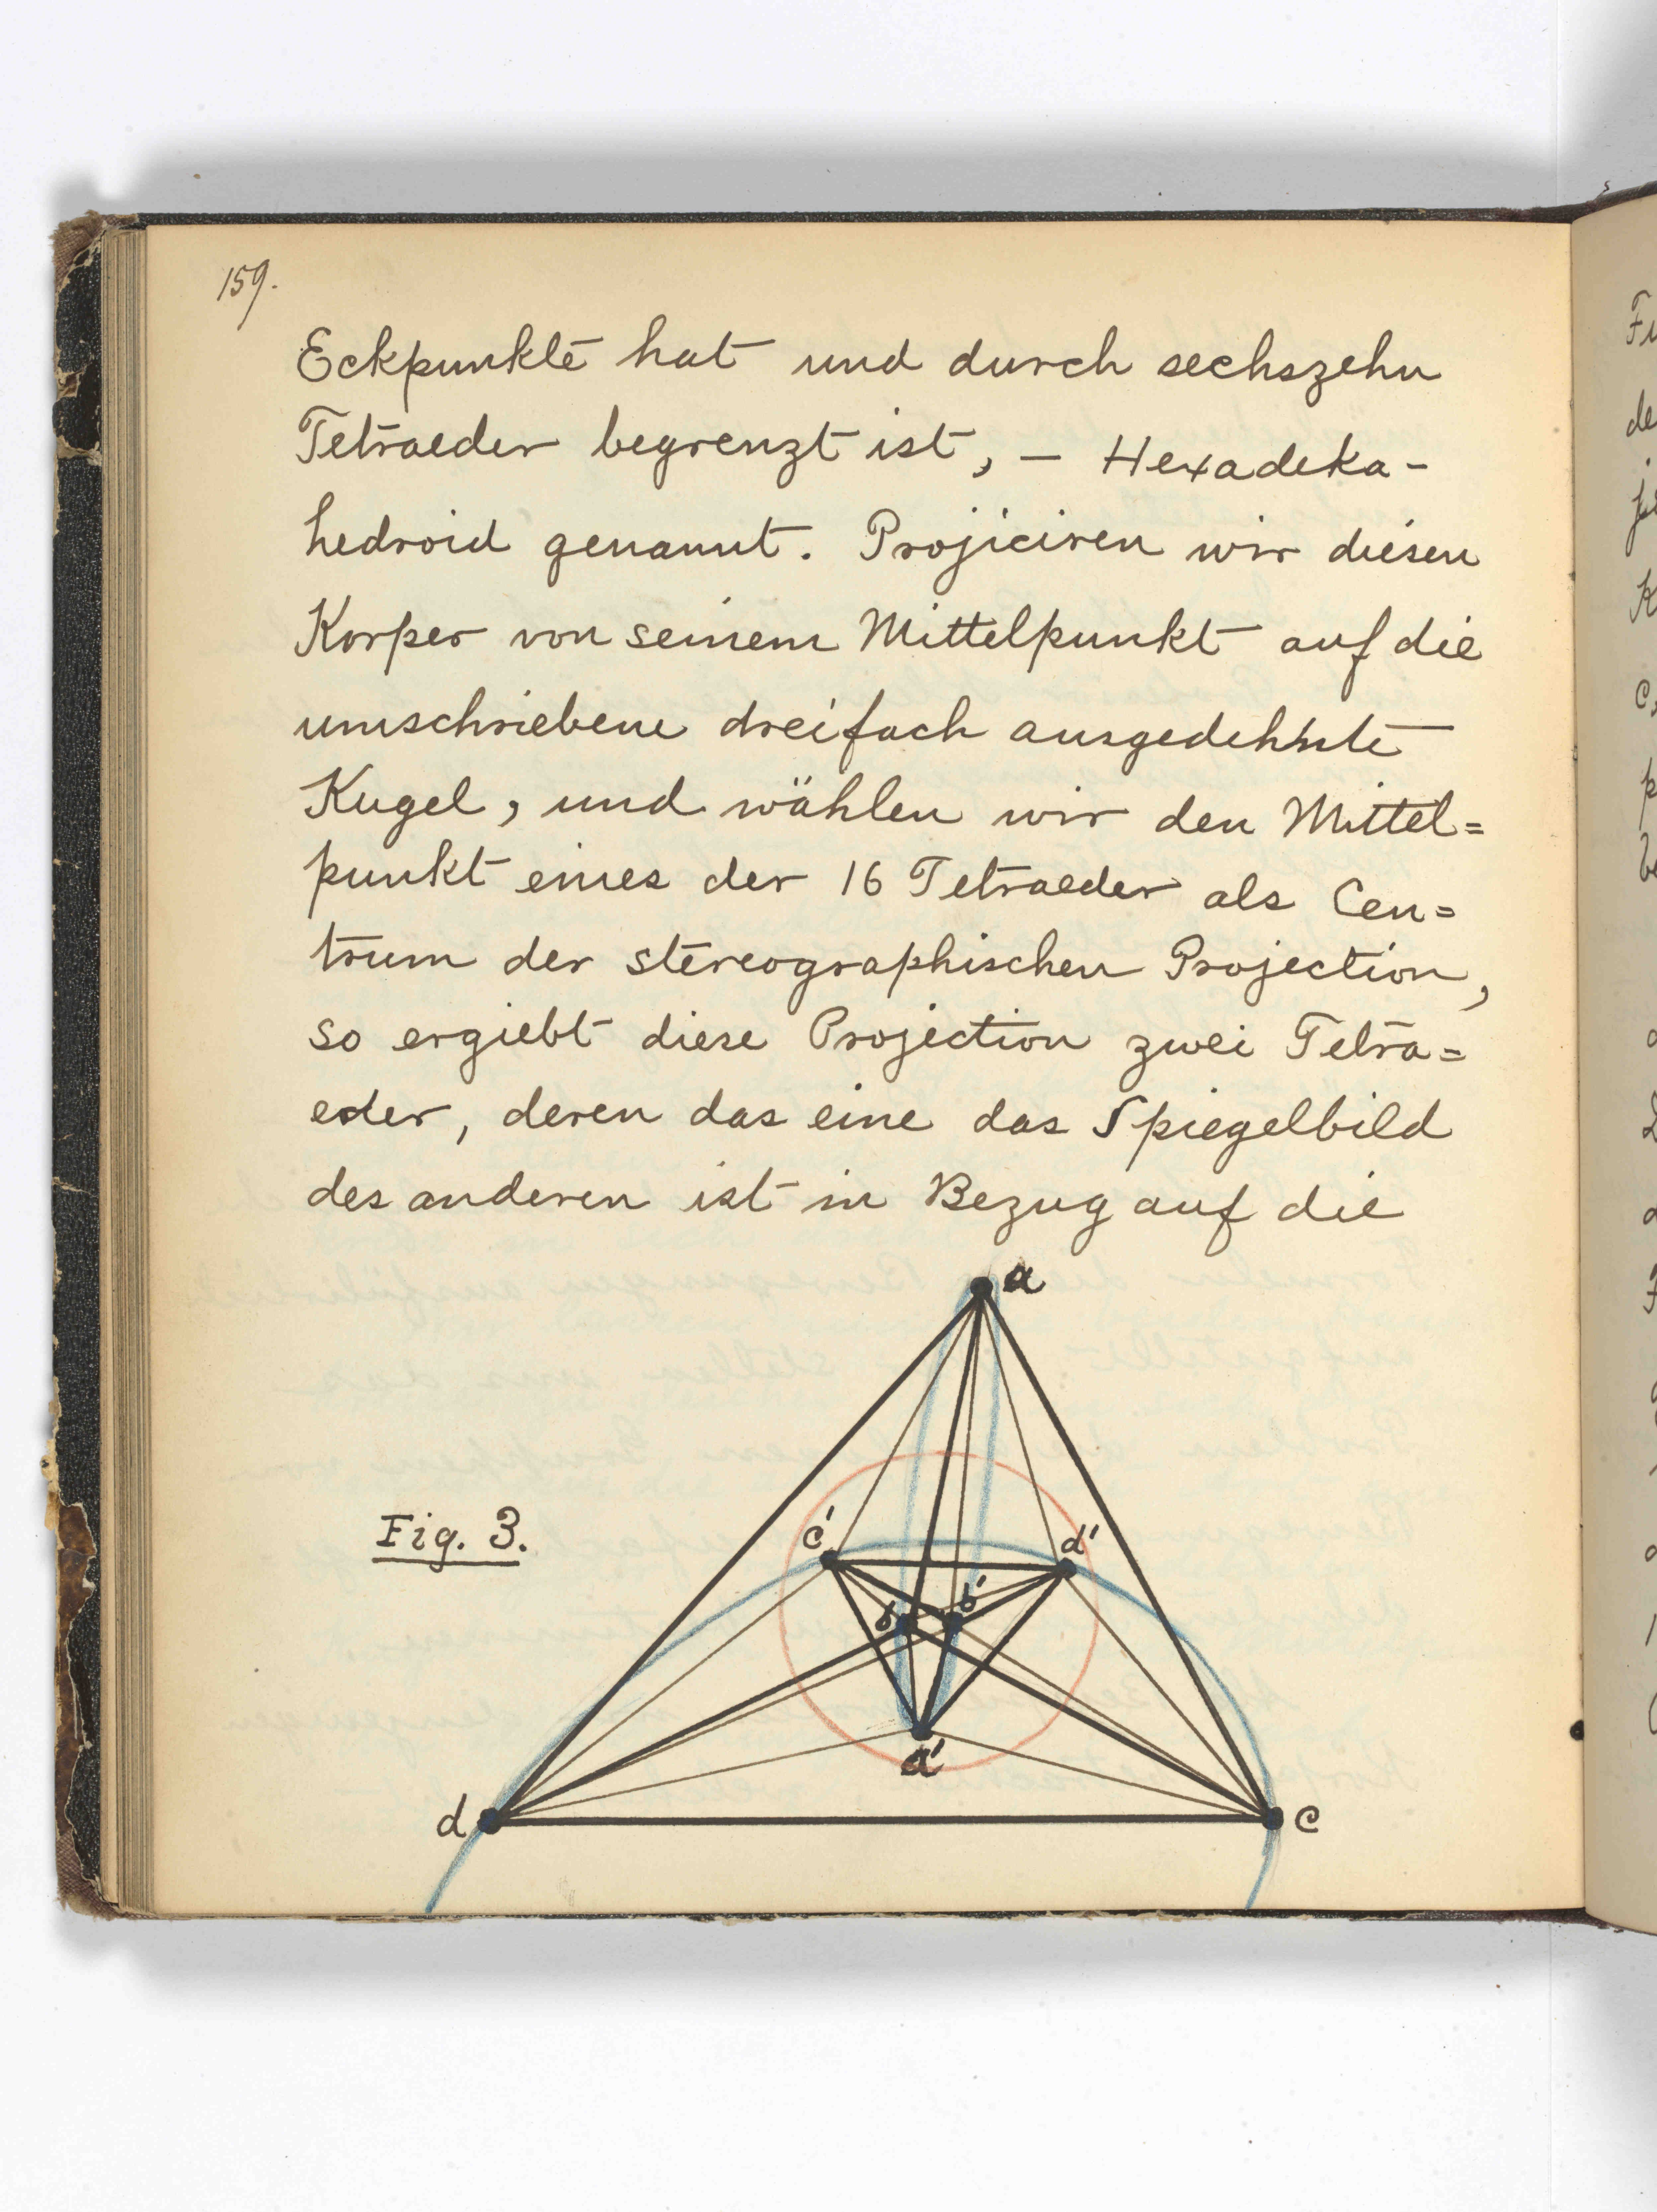 159.
Eckpunkte hat und durch sechszehn
Tetraeder begrenzt ist, – Hexadeka-
hedroid genannt. Projiciren wir diesen
Korper von seinem Mittelpunkt auf die
umschriebene dreifach ausgedehnte
Kugel, und wählen wir den Mittel=
punkt eines der 16 Tetraeder als Cen=
trum der stereographischen Projection,
so ergiebt diese Projection zwei Tetra=
eder, deren das eine das Spiegelbild
des anderen ist in Bezug auf die
a
Fig. 3.
c' d'
b b'
a'
d c